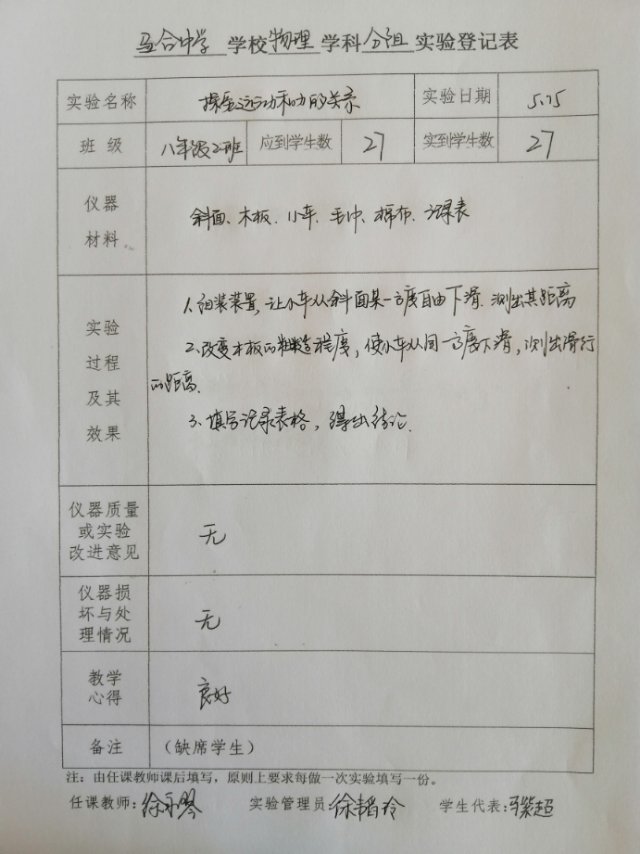 马合中学 学校 物理 学科 分组 实验登记表
实验名称 探究运动和力的关系 实验日期 5.15
班级 八年级2班 应到学生数 27 实到学生数 27
仪器
材料
斜面、木板、小车、毛巾、棉布、记录表
实验
过程
及其
效果
1、组装装置,让小车从斜面某一高度自由下滑.测出其距离
2、改变木板的粗糙程度,使小车从同一高度下滑,测出滑行
的距离.
3、填写记录表格,得出结论.
仪器质量
或实验
改进意见
无
仪器损
坏与处
理情况
无
教学
心得
良好
备注 (缺席学生)
注:由任课教师课后填写,原则上要求每做一次实验填写一份。
任课教师: 实验管理员: 学生代表: